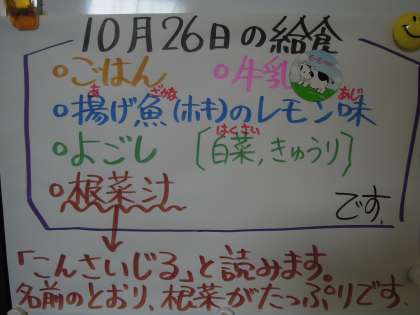 10月26日の給食
○ごはん ○牛乳
○揚げ魚(ホキ)のレモン味
あ ざかな あじ
○よごし [白菜,きゅうり]
はくさい
○根菜汁
です。
「こんさいじる」と読みます。
名前のとおり、根菜がたっぷりです。